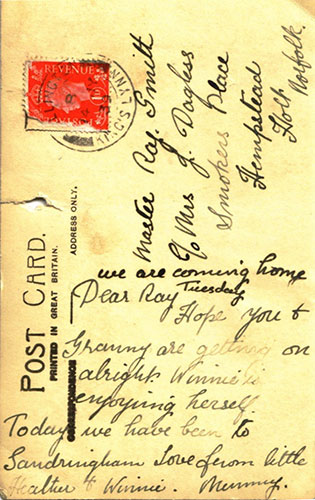 REVENUE
KING'S LYNN
POST CARD.
PRINTED IN GREAT BRITAIN.
ADDRESS ONLY.
CORRESPONDENCE
Master Ray. Smitt
C/o Mrs J. Dagless
Smokers Place
Hempstead
Holt
Norfolk.
we are coming home
Tuesday
Dear Ray
Hope you &
Granny are getting on
alright. Winnie is
enjoying herself
Today we have been to
Sandringham Love from little
Heather & Winnie. Mummy.